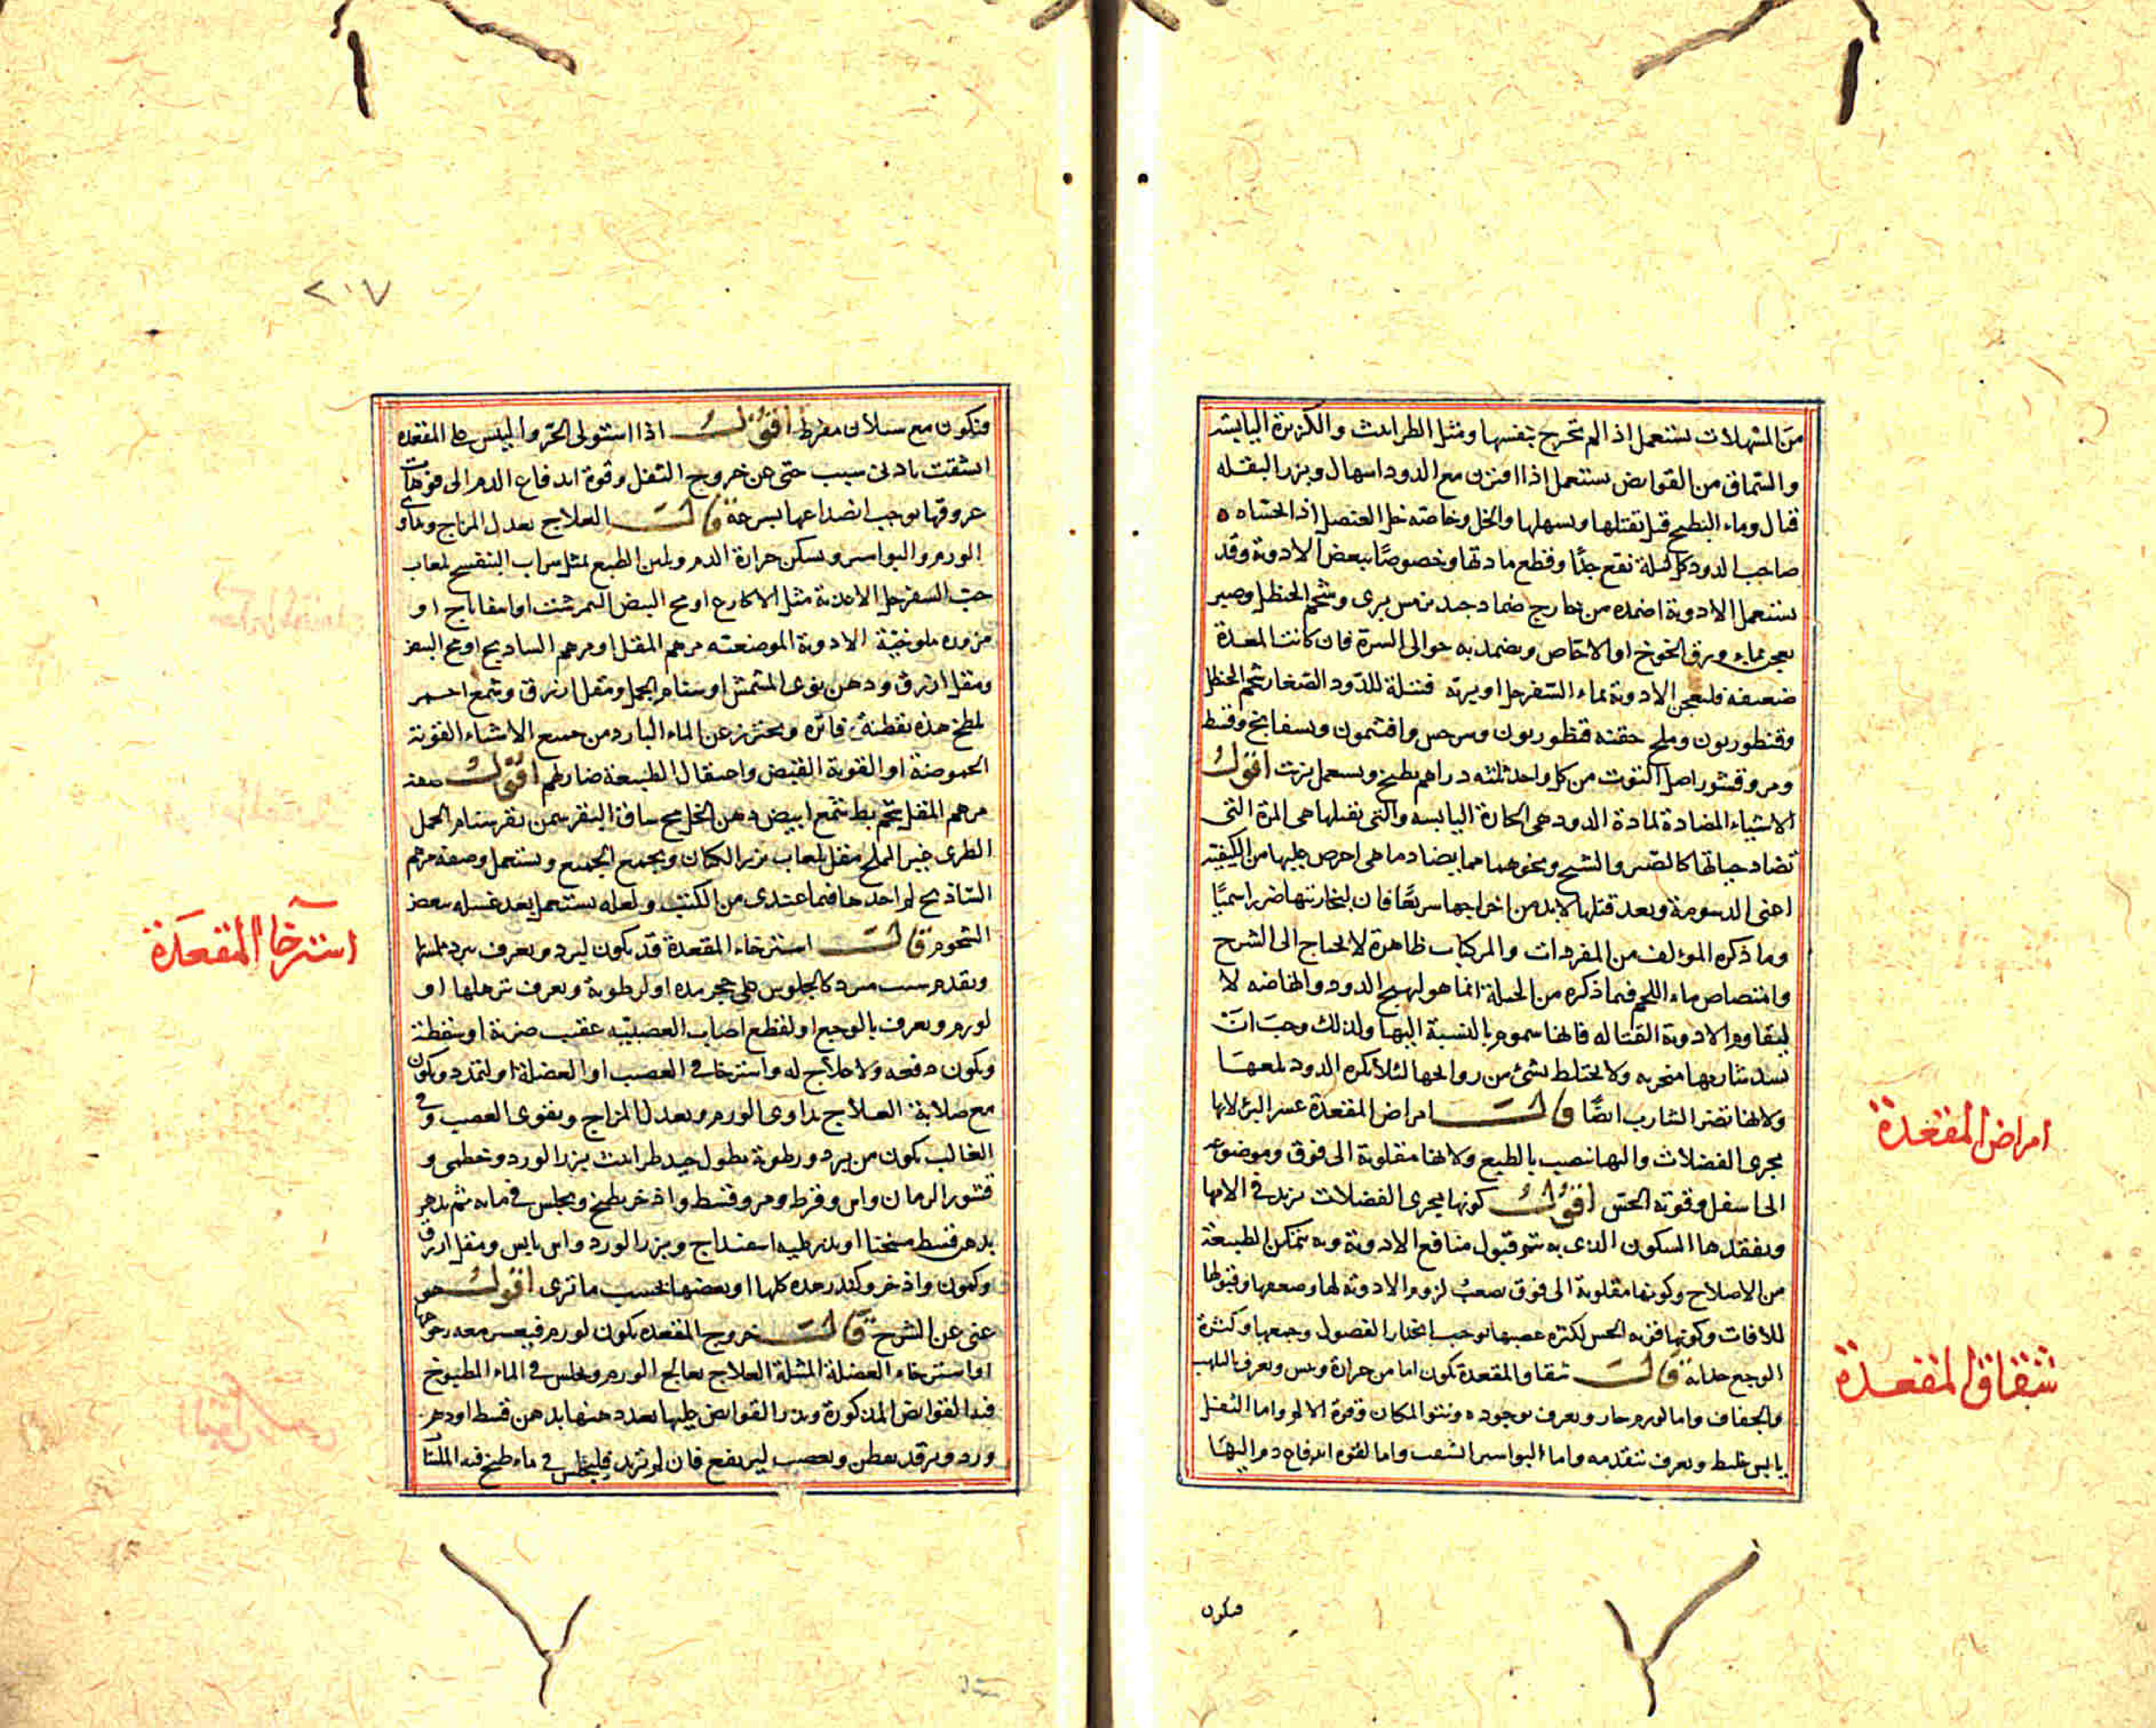 من المسهلات يستعمل اذا لم تخرج بنفسها ومثل الطراثيث والكزبرة اليابسة
والسماق من القوابض يستعمل اذا اقترن مع الدود اسهال وبزر البقله
قال وماء البطيخ قيل تقتلها ويسهلها والخل وخاصة خل العنصل اذا تحساه
صاحب الدود كل ليلة نفع جدًا وقطع مادتها وخصوصًا ببعض الادوية وقد
يستعمل الادوية اضمده من خارج ضماد جيد ترمس بري وشحم الحنظل وصبر
يعجن بماء ورق الخوخ او الاجاص ويضمد به حوالى السرة فان كانت المعدة
ضعيفه فليعجن الادوية بماء السفرجل او بربه فتيلة للدود الصغار شحم الحنظل
وقنطوريون وملح حقنه قنطوريون وترمس وافتيمون وبسفايج وقسط
ومر وقشور اصل التوت من كل واحد ثلثه دراهم يطبخ ويستعمل بزيت اقول
الاشياء المضادة لمادة الدود هي الحارة اليابسه والتي تقتلها هي المرة التي
تضاد حياتها كالصبر والشيح ونحوهما مما يضاد ما هي احرص عليها من الكيفية
اعنى الدسومة وبعد قتلها لابد من اخراجها سريعًا فان لبخاريتها ضررا سميًا
وما ذكره المؤلف من المفردات والمركبات ظاهرة لا تحتاج الى الشرح
وامتصاص ماء اللحم فيما ذكره من الحيلة انما هو ليهيج الدود والحامضه لا
ليقاوم الادوية القتاله فانها سموم بالنسبة اليها ولذلك وجب ان
يسد شاربها منخريه ولا يختلط بشئ من روايحها لئلا يكره الدود بلعها
ولانها تضر الشارب ايضًا قالت امراض المقعدة عسر البرء لانها
مجرى الفضلات واليها تنصب بالطبع ولانها مقلوبة الى فوق وموضوعه
الى اسفل وقوته الحس اقول كونها مجرى الفضلات يزيد في الامها
ويفقدها السكون الذي به يتم قبول منافع الادوية وبه تتمكن الطبيعة
من الاصلاح وكونها مقلوبة الى فوق يصعب لزوم الادوية لها وضعفها وقبولها
للافات وكونها قوية الحس لكثرة عصبها توجب انجذاب الفضول وجمعها وكثرة
الوجع قالت شقاق المقعدة تكون اما من حرارة ويبس ويعرف بالتلهب
والجفاف واما لورم حار ويعرف بوجوده ونتو المكان وقوة الالم واما لثفل
يابس غليظ ويعرف بتقدمه واما لبواسير انشقت واما لقوة اندفاع دم اليها
فيكون
امراض المقعدة
شقاق المقعدة
٢١٧
فيكون مع سيلان مفرط اقول اذا استولى الحر واليبس على المقعده
انشقت بادنى سبب حتى عن خروج الثفل وقوة اندفاع الدم الى فوهات
عروقها توجب انصداعها بسرعة قالت العلاج يعدل المزاج ويداوى
الورم والبواسير ويسكن حرارة الدم ويلين الطبع بمثل شراب البنفسج لعاب
حب السفرجل الاغذية مثل الاكارع او مح البيض النمرشت او اسفاناج او
مزوره ملوخية الادوية الموضعيه مرهم المقل او مرهم الساذج او مح البيض
ومقل ازرق ودهن نوى المشمش او سنام الجمل ومقل ازرق وشمع احمر
يلطخ هذه بقطنة فاتره ويحترز عن الماء البارد من جميع الاشياء القوية
الحموضة او القوية القبض واعتقال الطبيعة ضار لهم اقول صفة
مرهم المقل شحم بط شمع ابيض دهن الخل مح ساق البقر سمن بقر سنام الجمل
الطرى غير الملح مقل بلعاب بزر الكتان ويجمع الجميع ويستعمل وصفة مرهم
الساذج لم اجدها فيما عندى من الكتب ولعله يستعمل بعد غسله ببعض
الشحوم قالت استرخاء المقعدة قد يكون لبرد ويعرف ببرد ملمسها
وتقدم سبب مبرد كالجلوس على حجر بارد او لرطوبة ويعرف بترهلها او
لورم ويعرف بالوجع او لقطع اصاب العصبية عقيب ضربة او سقطة
ويكون دفعه ولا علاج له واسترخا في العصب او العضلة او لتمدد ويكون
مع صلابة العلاج يداوى الورم ويعدل المزاج ويقوى العصب وفي
الغالب يكون من برد ورطوبة نطول جيد طراثيث بزر الورد وخطمى و
قشور الرمان واس وقرط ومر وقسط واذخر يطبخ ويجلس في مائه ثم يدهن
بدهن قسط مسخنا او يذر عليه اسفيداج وبزر الورد واس يابس ومقل ازرق
وكمون واذخر وكندر وحده كلها او بعضها بحسب ما ترى اقول هو
غنى عن الشرح قالت خروج المقعده يكون لورم فيعسر معه رجوعها
او استرخاء العضلة المشيلة العلاج يعالج الورم ويجلس في الماء المطبوخ
فيه القوابض المذكورة ويذر القوابض عليها بعد دهنها بدهن قسط او دهن
ورد ويرفد بقطن ويعصب ليرتفع فان لم ترتد فليجلس في ماء طبخ فيه الملينات
استرخا المقعدة